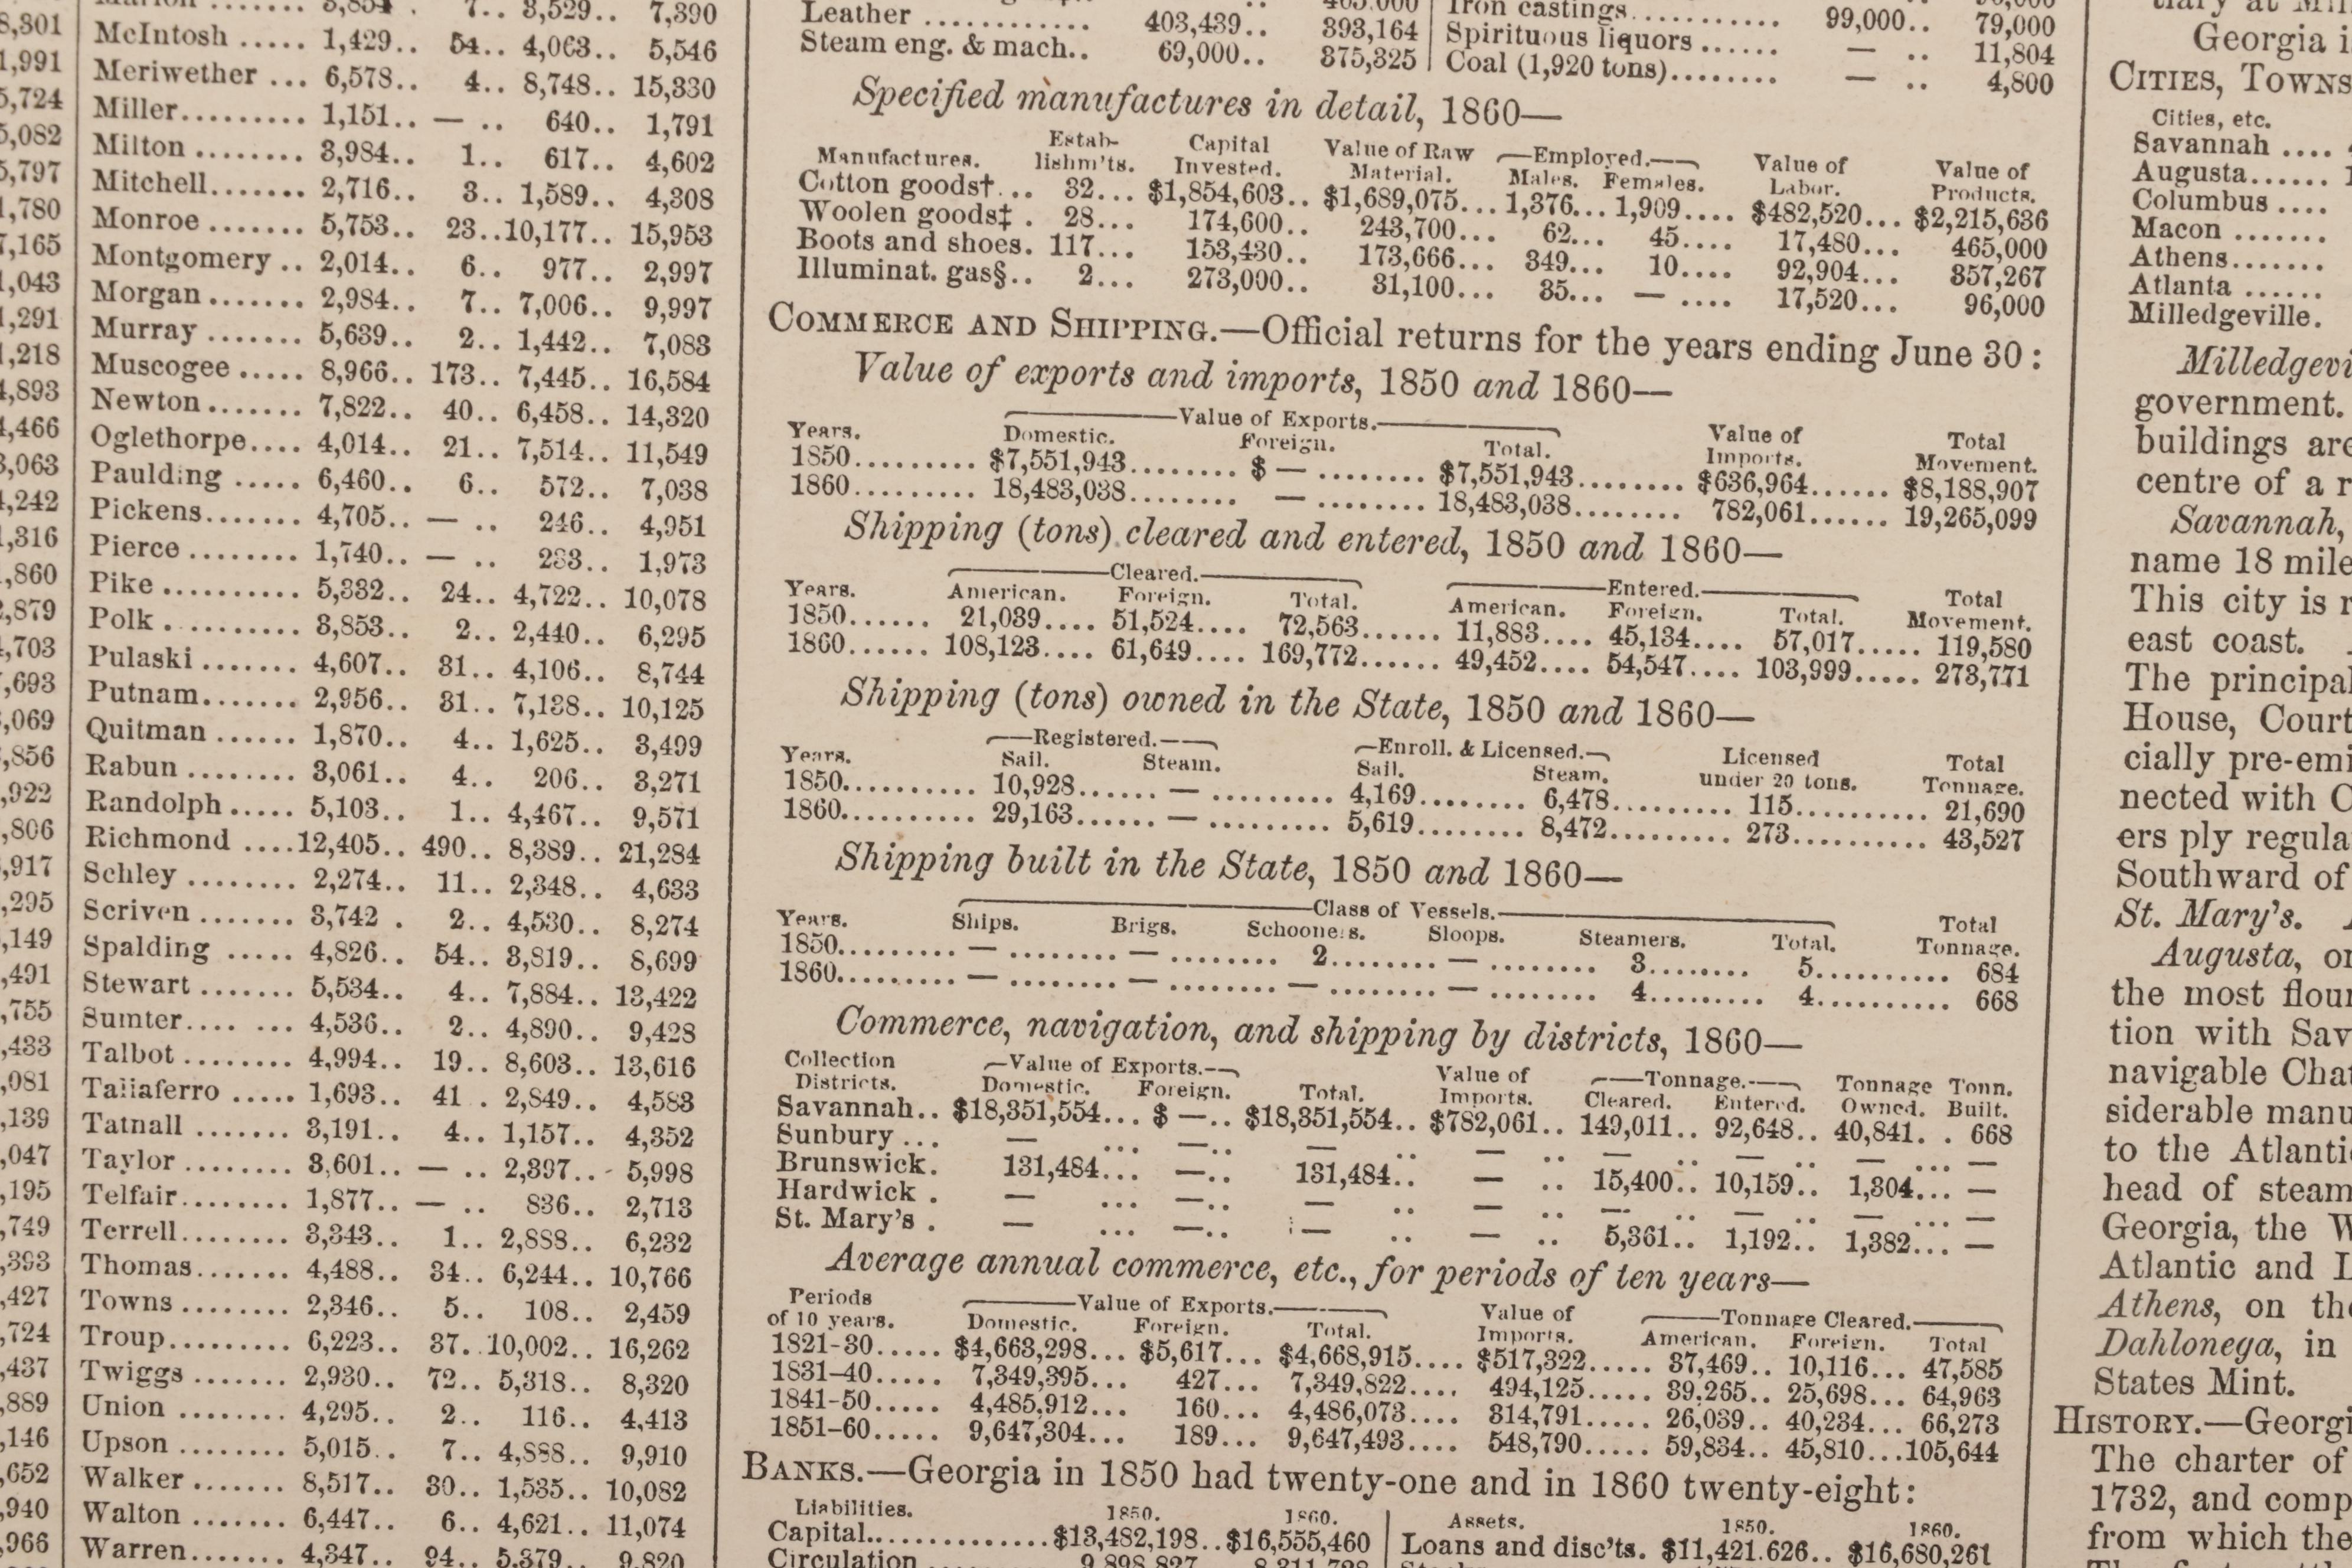 8,301
1,991
5,724
5,082
5,797
1,780
7,165
1,043
1,291
1,218
4,893
4,466
3,063
4,242
1,316
,860
2,879
4,703
,693
,069
,856
,922
,806
,917
,295
,149
,491
,755
,433
,081
,139
,047
,195
,749
,393
,427
,724
,437
,889
,146
,652
,940
,966
Marion ....... 3,854 . 7.. 3,529.. 7,390
McIntosh ..... 1,429.. 54.. 4,063.. 5,546
Meriwether ... 6,578.. 4.. 8,748.. 15,330
Miller......... 1,151.. — .. 640.. 1,791
Milton ........ 3,984.. 1.. 617.. 4,602
Mitchell....... 2,716.. 3.. 1,589.. 4,308
Monroe ....... 5,753.. 23..10,177.. 15,953
Montgomery .. 2,014.. 6.. 977.. 2,997
Morgan ....... 2,984.. 7.. 7,006.. 9,997
Murray ....... 5,639.. 2.. 1,442.. 7,083
Muscogee ..... 8,966.. 173.. 7,445.. 16,584
Newton ....... 7,822.. 40.. 6,458.. 14,320
Oglethorpe.... 4,014.. 21.. 7,514.. 11,549
Paulding ..... 6,460.. 6.. 572.. 7,038
Pickens....... 4,705.. — .. 246.. 4,951
Pierce ........ 1,740.. — .. 233.. 1,973
Pike .......... 5,332.. 24.. 4,722.. 10,078
Polk . ........ 3,853.. 2.. 2,440.. 6,295
Pulaski ....... 4,607.. 31.. 4,106.. 8,744
Putnam....... 2,956.. 31.. 7,138.. 10,125
Quitman ...... 1,870.. 4.. 1,625.. 3,499
Rabun ........ 3,061.. 4.. 206.. 3,271
Randolph ..... 5,103.. 1.. 4,467.. 9,571
Richmond ....12,405.. 490.. 8,389.. 21,284
Schley ........ 2,274.. 11.. 2,348.. 4,633
Scriven ....... 3,742 . 2.. 4,530.. 8,274
Spalding ..... 4,826.. 54.. 3,819.. 8,699
Stewart ....... 5,534.. 4.. 7,884.. 13,422
Sumter.... ... 4,536.. 2.. 4,890.. 9,428
Talbot ........ 4,994.. 19.. 8,603.. 13,616
Taliaferro ..... 1,693.. 41 . 2,849.. 4,583
Tatnall ....... 3,191.. 4.. 1,157.. 4,352
Taylor ........ 3,601.. — .. 2,397.. 5,998
Telfair........ 1,877.. — .. 836.. 2,713
Terrell........ 3,343.. 1.. 2,888.. 6,232
Thomas....... 4,488.. 34.. 6,244.. 10,766
Towns ........ 2,346.. 5.. 108.. 2,459
Troup......... 6,223.. 37. .10,002.. 16,262
Twiggs ....... 2,930.. 72.. 5,318.. 8,320
Union ........ 4,295.. 2.. 116.. 4,413
Upson ........ 5,015.. 7.. 4,888.. 9,910
Walker ....... 8,517.. 30.. 1,535.. 10,082
Walton ....... 6,447.. 6.. 4,621.. 11,074
Warren....... 4,347.. 94.. 5,379.. 9,820
Leather ............ 403,439.. 393,164
Steam eng. & mach.. 69,000.. 375,325
Iron castings........... 99,000.. 79,000
Spirituous liquors ...... — .. 11,804
Coal (1,920 tons)........ — .. 4,800
Specified manufactures in detail, 1860—
Manufactures. Establishm'ts. Capital Invested. Value of Raw Material. —Employed.— Males. Females. Value of Labor. Value of Products.
Cotton goods† ... 32... $1,854,603.. $1,689,075... 1,376... 1,909.... $482,520... $2,215,636
Woolen goods‡ . 28... 174,600.. 243,700... 62... 45.... 17,480... 465,000
Boots and shoes. 117... 153,430.. 173,666... 349... 10.... 92,904... 357,267
Illuminat. gas§.. 2... 273,000.. 31,100... 35... — .... 17,520... 96,000
COMMERCE AND SHIPPING.—Official returns for the years ending June 30 :
Value of exports and imports, 1850 and 1860—
Years. —Value of Exports.— Domestic. Foreign. Total. Value of Imports. Total Movement.
1850......... $7,551,943........ $ — ........ $7,551,943........ $636,964...... $8,188,907
1860......... 18,483,038........ — ........ 18,483,038........ 782,061...... 19,265,099
Shipping (tons) cleared and entered, 1850 and 1860—
Years. —Cleared.— American. Foreign. Total. —Entered.— American. Foreign. Total. Total Movement.
1850...... 21,039.... 51,524.... 72,563...... 11,883.... 45,134.... 57,017..... 119,580
1860...... 108,123.... 61,649.... 169,772...... 49,452.... 54,547.... 103,999..... 273,771
Shipping (tons) owned in the State, 1850 and 1860—
Years. —Registered.— Sail. Steam. —Enroll. & Licensed.— Sail. Steam. Licensed under 20 tons. Total Tonnage.
1850.......... 10,928...... — ......... 4,169........ 6,478......... 115.......... 21,690
1860.......... 29,163...... — ......... 5,619........ 8,472......... 273.......... 43,527
Shipping built in the State, 1850 and 1860—
Years. —Class of Vessels.— Ships. Brigs. Schooners. Sloops. Steamers. Total. Total Tonnage.
1850......... — ........ — ........ 2........ — ........ 3........ 5.......... 684
1860......... — ........ — ........ — ........ — ........ 4......... 4.......... 668
Commerce, navigation, and shipping by districts, 1860—
Collection Districts. —Value of Exports.— Domestic. Foreign. Total. Value of Imports. —Tonnage.— Cleared. Entered. Tonnage Owned. Tonn. Built.
Savannah.. $18,351,554... $ —.. $18,351,554.. $782,061.. 149,011.. 92,648.. 40,841. . 668
Sunbury ... — ... —.. — .. — .. — .. — .. — ... —
Brunswick. 131,484... —.. 131,484.. — .. 15,400.. 10,159.. 1,304... —
Hardwick . — ... —.. — .. — .. — .. — .. — ... —
St. Mary's . — ... —.. — .. — .. 5,361.. 1,192.. 1,382... —
Average annual commerce, etc., for periods of ten years—
Periods of 10 years. —Value of Exports.— Domestic. Foreign. Total. Value of Imports. —Tonnage Cleared.— American. Foreign. Total
1821-30..... $4,663,298... $5,617... $4,668,915.... $517,322..... 37,469.. 10,116... 47,585
1831-40..... 7,349,395... 427... 7,349,822.... 494,125..... 39,265.. 25,698... 64,963
1841-50..... 4,485,912... 160... 4,486,073.... 314,791..... 26,039.. 40,234... 66,273
1851-60..... 9,647,304... 189... 9,647,493.... 548,790..... 59,834.. 45,810...105,644
BANKS.—Georgia in 1850 had twenty-one and in 1860 twenty-eight :
Liabilities. 1850. 1860.
Capital.............. $13,482,198.. $16,555,460
Circulation
Assets. 1850. 1860.
Loans and disc'ts. $11,421,626.. $16,680,261
Georgia
CITIES, TOWNS
Cities, etc.
Savannah ....
Augusta......
Columbus ....
Macon .......
Athens.......
Atlanta ......
Milledgeville.
Milledgevi
government.
buildings are
centre of a r
Savannah,
name 18 mile
This city is
east coast.
The principal
House, Court
cially pre-emi
nected with C
ers ply regula
Southward of
St. Mary's.
Augusta, on
the most flour
tion with Sav
navigable Chat
siderable manu
to the Atlanti
head of steam
Georgia, the W
Atlantic and L
Athens, on the
Dahlonega, in
States Mint.
HISTORY.—Georgi
The charter of
1732, and comp
from which the